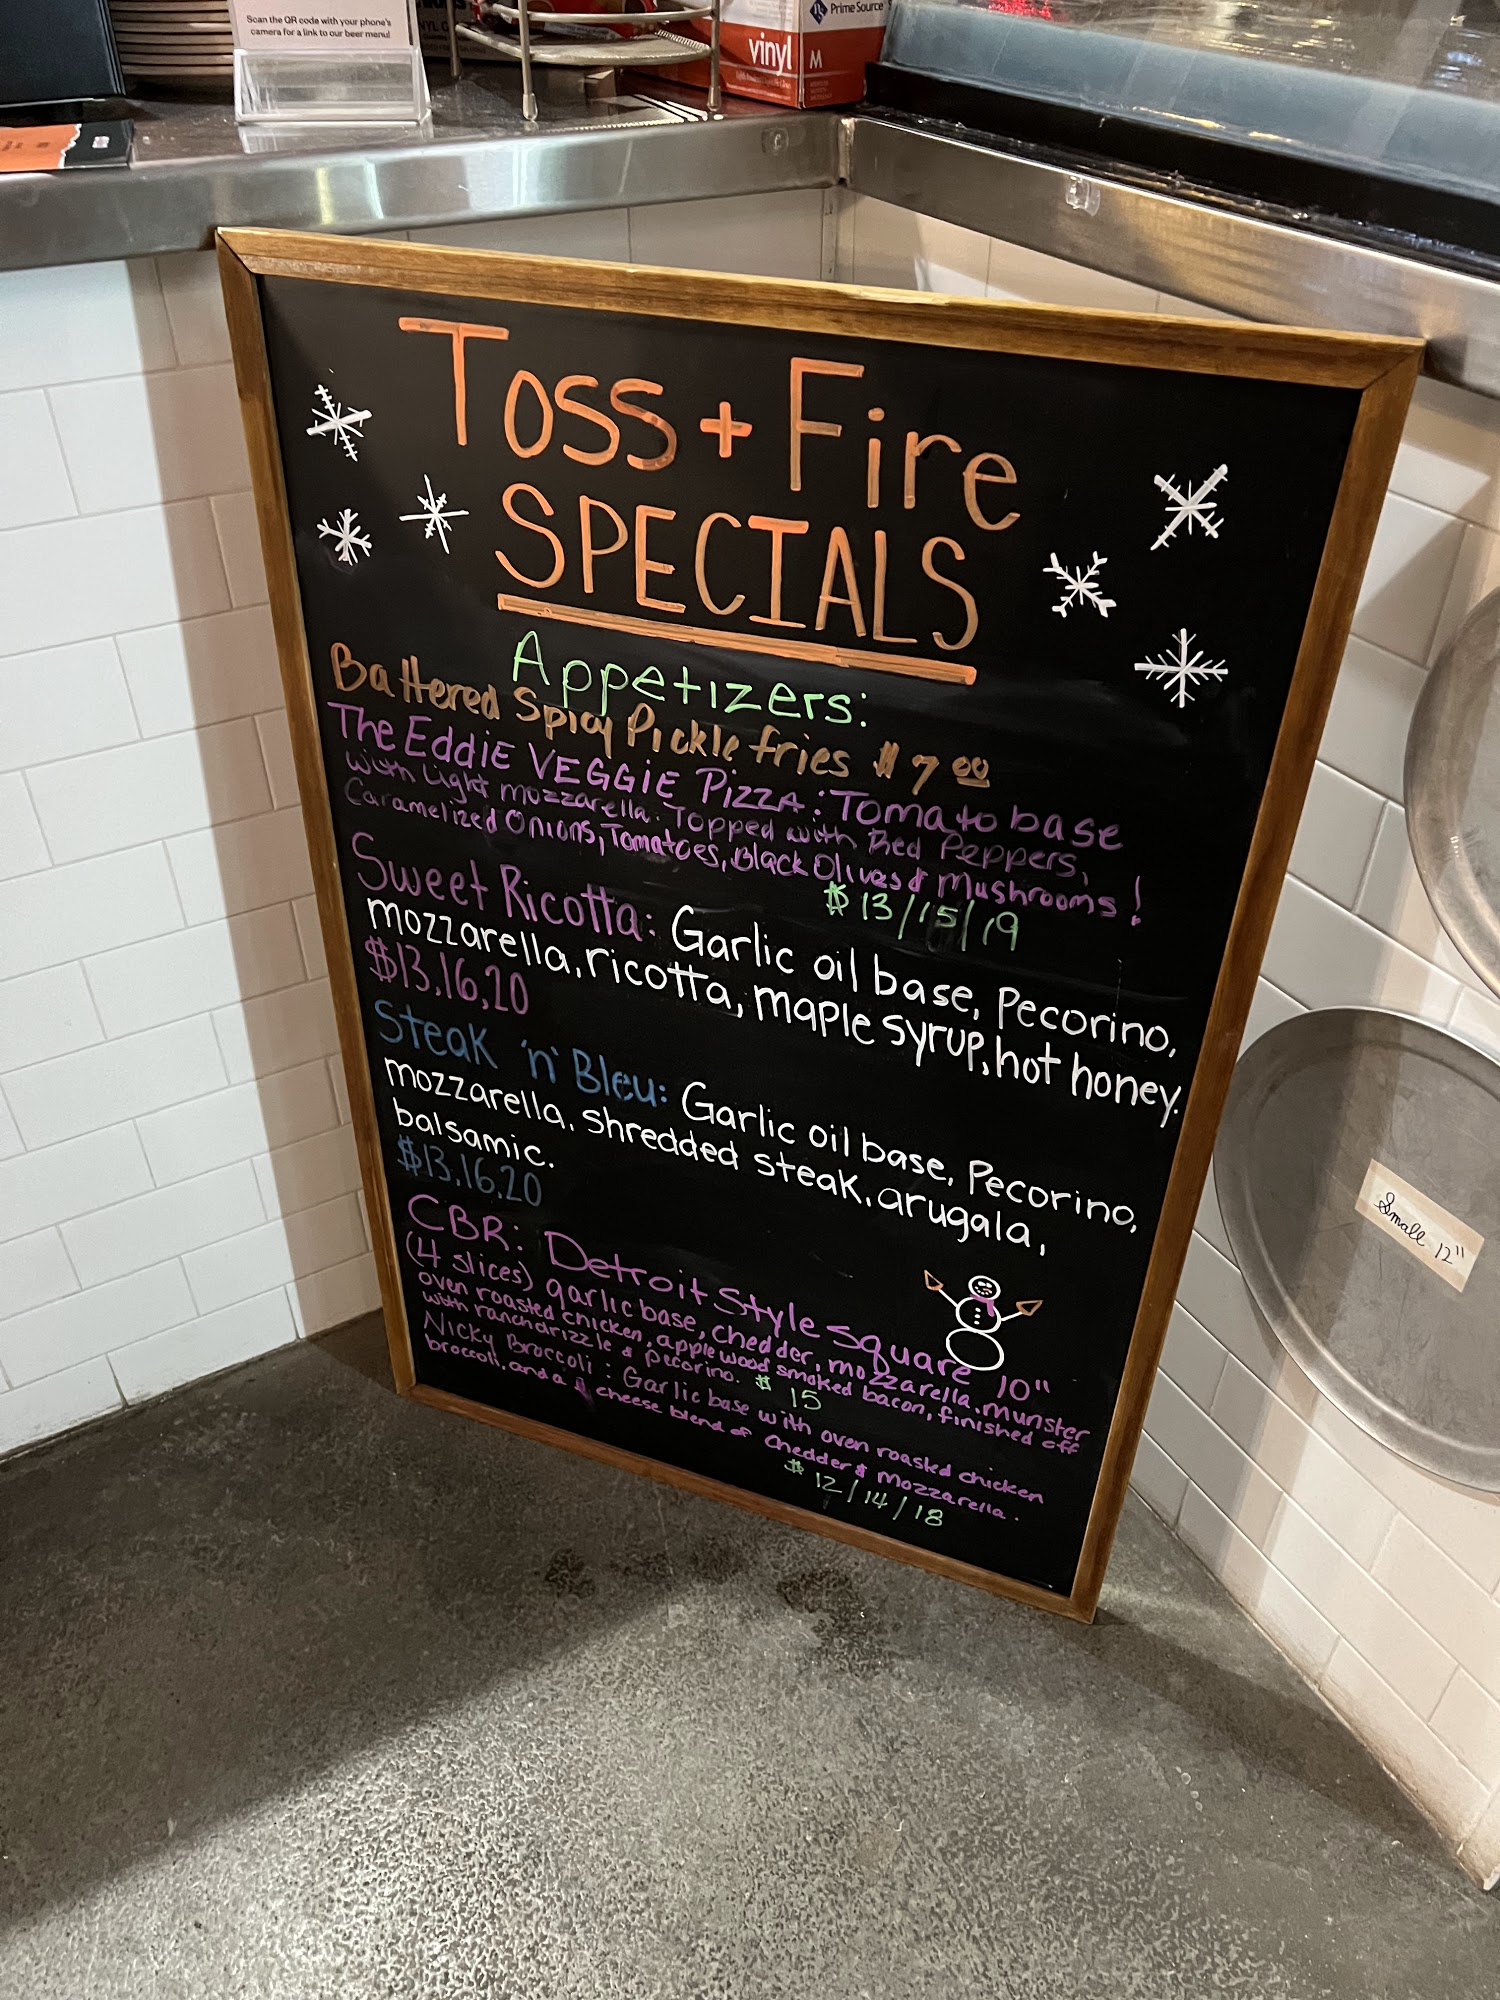 Scan the QR code with your phone's
camera for a link to our beer menu!
Prime Source
vinyl
M
Toss + Fire
SPECIALS
Appetizers:
Battered Spicy Pickle fries $7.00
The EddiE VEGGiE PizzA: Tomato base
with light mozzarella. Topped with Red Peppers,
Caramelized Onions, Tomatoes, Black Olives & Mushrooms!
$13/15/19
Sweet Ricotta: Garlic oil base, Pecorino,
mozzarella, ricotta, maple syrup, hot honey.
$13,16,20
Steak 'n' Bleu: Garlic oil base, Pecorino,
mozzarella, shredded steak, arugala,
balsamic.
$13,16,20
CBR: Detroit Style Square 10"
(4 slices) garlic base, chedder, mozzarella, munster
oven roasted chicken, applewood smoked bacon, finished off
with ranch drizzle & pecorino. $15
Nicky Broccoli: Garlic base with oven roasted chicken
broccoli, and a cheese blend of chedder & mozzarella.
$12/14/18
Small 12"